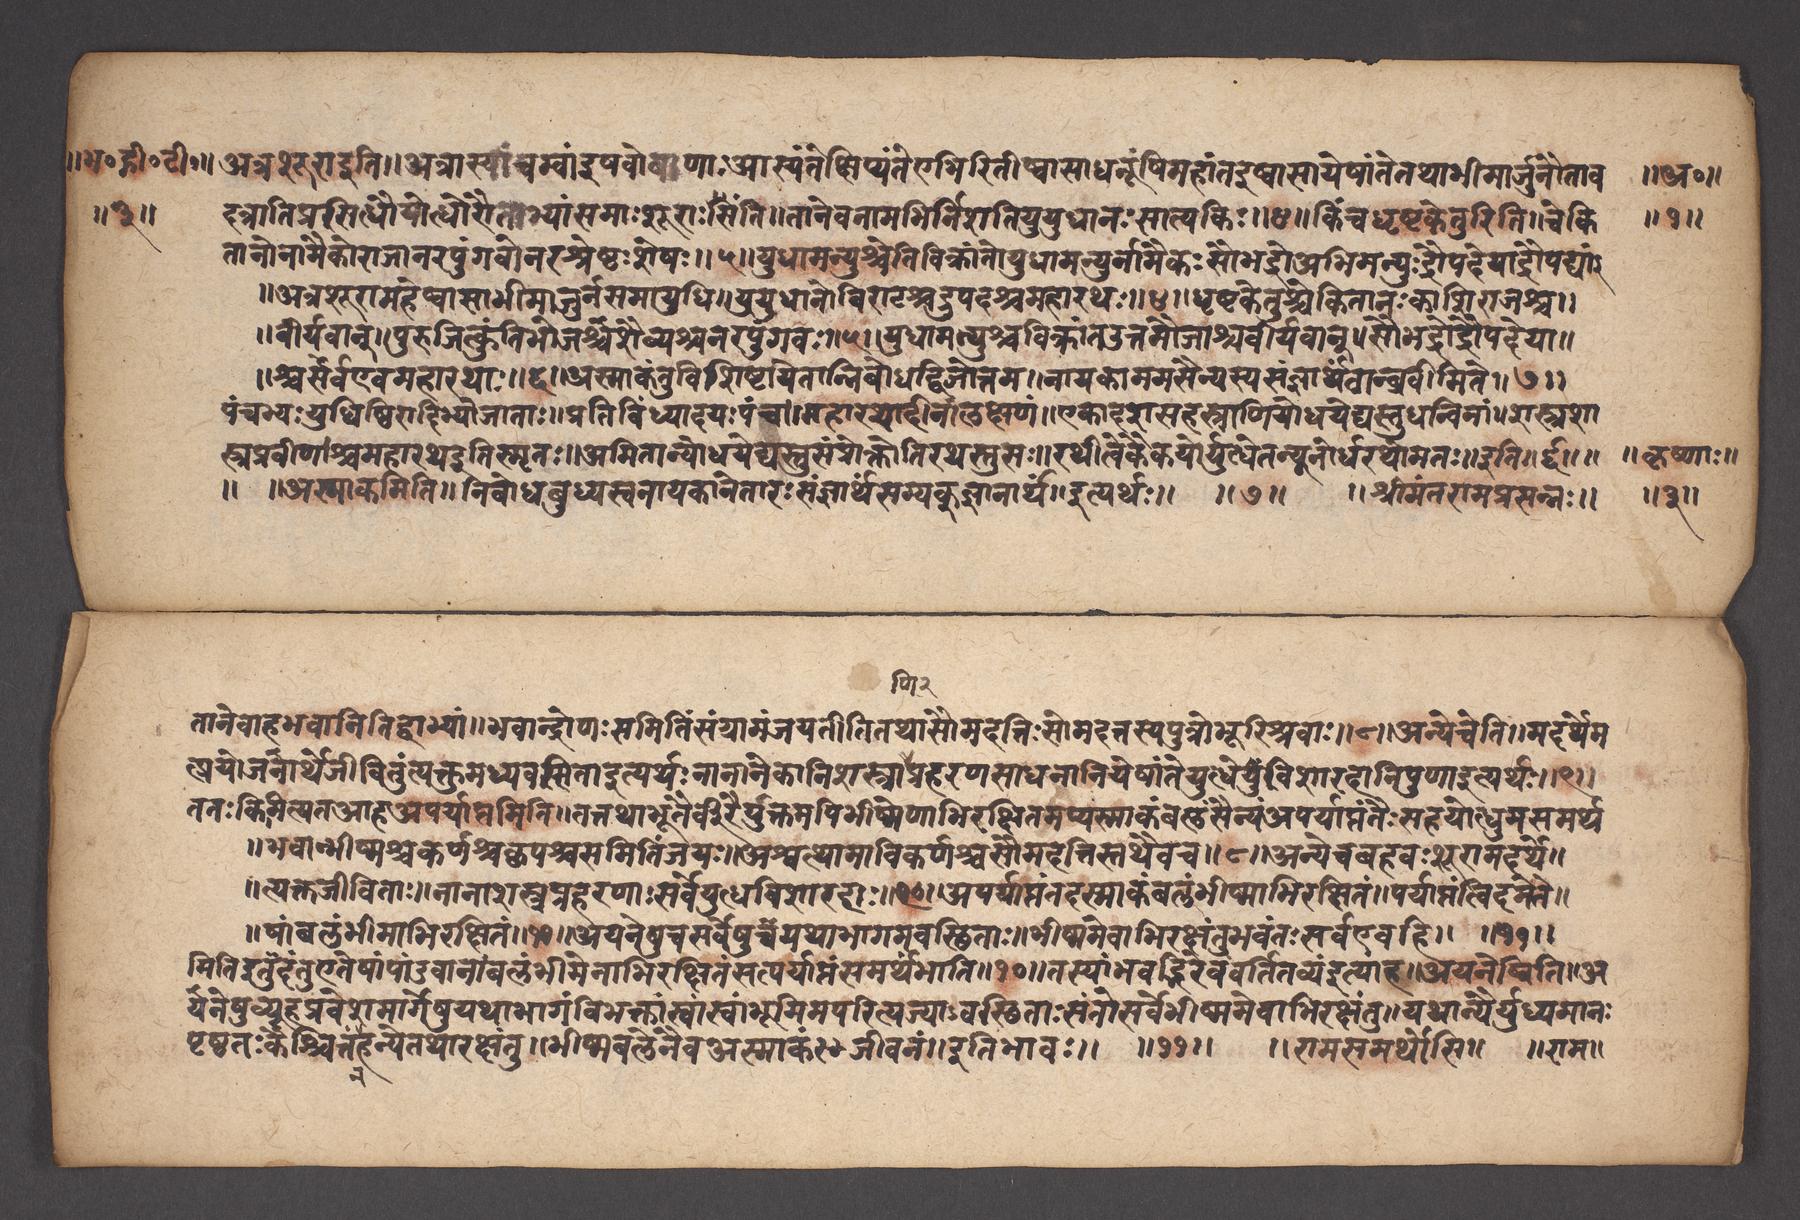 ॥भ०गी०टी०॥ अत्रशूराइति॥अत्रास्यांचम्वांइषवोबाणाःआस्यंतेक्षिप्यंतेएभिरितीष्वासाधनूंषिमहांतइष्वासायेषांतेतथाभीमार्जुनौताव ॥अ०॥
॥३॥ दत्रातिप्रसिद्धौयोद्धौरौताभ्यांसमाःशूराःसंति॥तानेवनामभिर्निर्शतियुयुधानःसात्यकिः॥४॥किंचधृष्टकेतुरिति॥चेकि ॥१॥
तानोनामैकोराजानरपुंगवोनरश्रेष्ठःशेषः॥५॥युधामन्युश्चेतिविक्रांतोयुधामन्युर्नामैकःसौभद्रोअभिमन्युःद्रौपदेयाद्रौपद्यां
॥अत्रशूरामहेष्वासाभीमार्जुनसमायुधि॥युयुधानोविराटश्चद्रुपदश्चमहारथः॥४॥धृष्टकेतुश्चेकितानःकाशिराजश्च॥
॥वीर्यवान्॥पुरुजित्कुंतिभोजश्चशैब्यश्चनरपुंगवः॥५॥युधामन्युश्चविक्रांतउत्तमौजाश्चवीर्यवान्॥सौभद्रोद्रौपदेया॥
॥श्चसर्वएवमहारथाः॥६॥अस्माकंतुविशिष्टायेतान्निबोधद्विजोत्तम॥नायकाममसैन्यस्यसंज्ञार्थंतान्ब्रवीमिते॥७॥
पंचभ्यःयुधिष्ठिरादिभ्योजाताः॥प्रतिविंध्यादयःपंच॥महारथादीनांलक्षणं॥एकादशसहस्राणियोधयेद्यस्तुधन्विनां॥शस्त्रशा
स्त्रप्रवीणश्चमहारथइतिस्मृतः॥अमितान्योधयेद्यस्तुसंप्रोक्तोतिरथस्तुसः॥रथीत्वेकैकयोर्युद्धेतन्यूनोर्धरथोमतः॥इति॥६॥ ॥कृष्णाः॥
॥ ॥अस्माकमिति॥निबोधबुध्यस्वनायकानेतारःसंज्ञार्थंसम्यक्ज्ञानार्थं॥इत्यर्थः॥ ॥७॥ ॥श्रीमंतरामप्रसन्नः॥ ॥३॥
णि२
तानेवाहभवानितिद्वाभ्यां॥भवान्द्रोणःसमितिंसंग्रामंजयतीतितथासौमदत्तिःसोमदत्तस्यपुत्रोभूरिश्रवाः॥८॥अन्येचेति॥मदर्थेम
त्प्रयोजनार्थेजीवितुंत्यक्तुमध्यवसिताइत्यर्थःनानानेकानिशस्त्राप्रहरणसाधनानियेषांतेयुद्धेषुविशारदानिपुणाइत्यर्थः॥९॥
ततःकिमीत्यतआहअपर्याप्तमिति॥तत्तथाभूतैर्वीरैर्युक्तमपिभीष्मेणाभिरक्षितमप्यस्माकंबलंसैन्यंअपर्याप्तंतैःसहयोद्धुमसमर्थं
॥भवान्भीष्मश्चकर्णश्चकृपश्चसमितिंजयः॥अश्वत्थामाविकर्णश्चसौमदत्तिस्तथैवच॥८॥अन्येचबहवःशूरामदर्थे॥
॥त्यक्तजीविताः॥नानाशस्त्रप्रहरणाःसर्वेयुद्धविशारदाः॥१०॥अपर्याप्तंतदस्माकंबलंभीष्माभिरक्षितं॥पर्याप्तंत्विदमेते॥
॥षांबलंभीमाभिरक्षितं॥१०॥अयनेषुचसर्वेषुचयथाभागमवस्थिताः॥भीष्ममेवाभिरक्षंतुभवंतःसर्वएवहि॥ ॥११॥
मितिइतुंहंतुएतेषांपांडवानांबलंभीमेनाभिरक्षितंसत्पर्याप्तंसमर्थंभाति॥१०॥तस्यांभवद्भिरेवंवर्तितव्यंइत्याह॥अयनेष्विति॥अ
र्यनेषुव्यूहप्रवेशमार्गेषुयथाभागंविभक्तांस्वांस्वांभूमिमपरित्यज्याऽवस्थिताःसंतोसर्वेभीष्ममेवाभिरक्षंतु॥यथान्यैर्युध्यमानः
पृष्ठतःकैश्चित्तहन्येतथारक्षंतु॥भीष्मबलेनैवअस्माकंजीवनं॥इतिभावः॥ ॥११॥ ॥रामसमर्थोसि॥ ॥राम॥
न